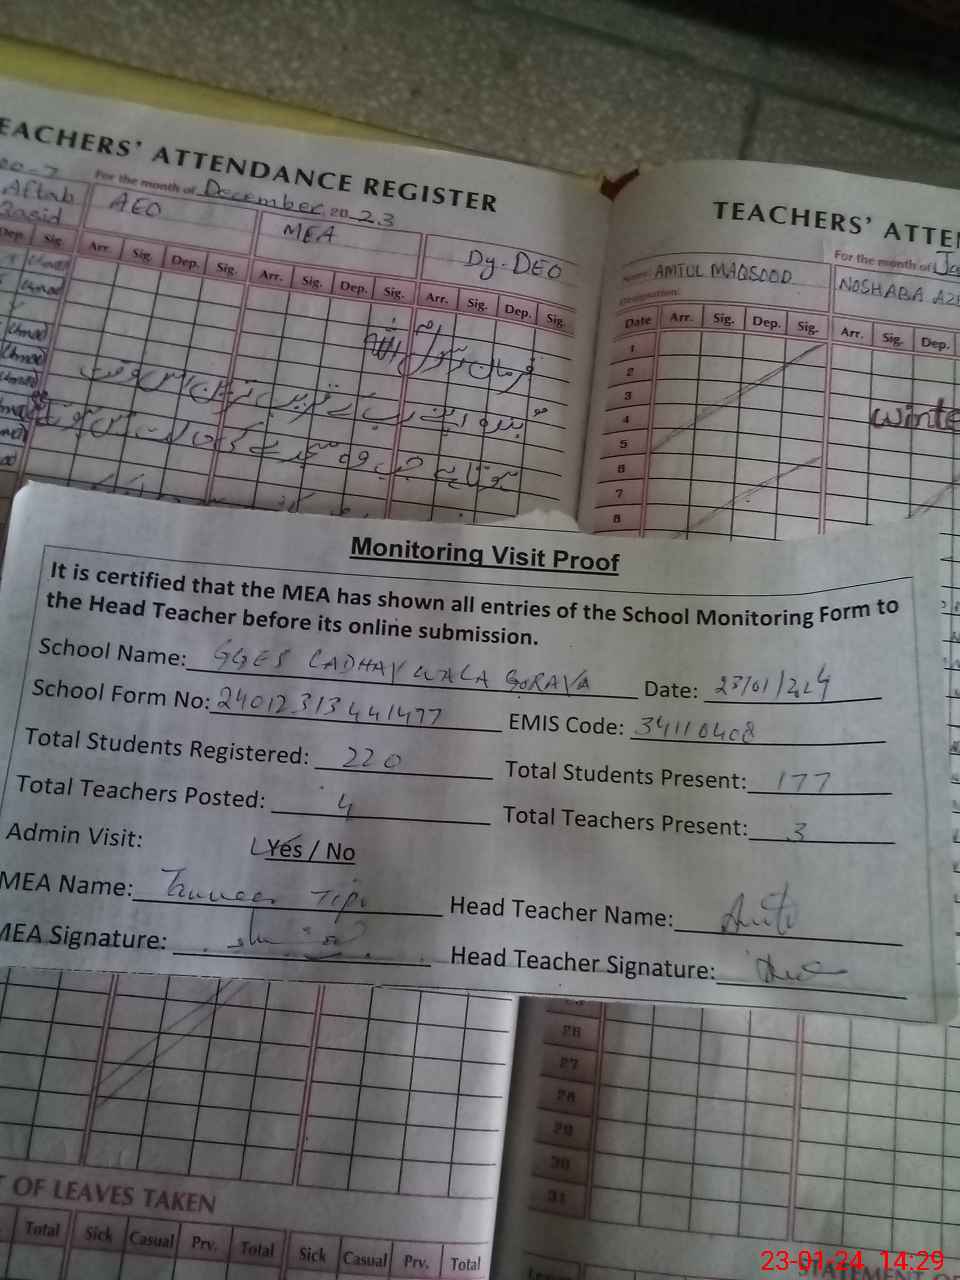 TEACHERS' ATTENDANCE REGISTER
For the month of December 2023
Aftab
AEO
MEA
Dy. DEO
Dep. Sig. Arr. Sig. Dep. Sig. Arr. Sig. Dep. Sig. Arr. Sig. Dep. Sig.
فرمان رسول اللہ ﷺ
بندہ اپنے رب کے قریب ترین اس وقت
ہوتا ہے جب وہ سجدے کی حالت میں ہوتا
TEACHERS' ATTE
For the month of
Name: AMTUL MAQSOOD
NOSHABA
Designation:
Date Arr. Sig. Dep. Sig. Arr. Sig. Dep.
1
2
3
4
winte
5
6
7
8
Monitoring Visit Proof
It is certified that the MEA has shown all entries of the School Monitoring Form to
the Head Teacher before its online submission.
School Name: GGES LADHAY WALA GORAYA Date: 23/01/2024
School Form No: 24012313441477 EMIS Code: 34110408
Total Students Registered: 220 Total Students Present: 177
Total Teachers Posted: 4 Total Teachers Present: 3
Admin Visit: Yes / No
MEA Name: Head Teacher Name:
MEA Signature: Head Teacher Signature:
26
27
28
29
30
31
OF LEAVES TAKEN
Total Sick Casual Prv. Total Sick Casual Prv. Total
23-01-24 14:29